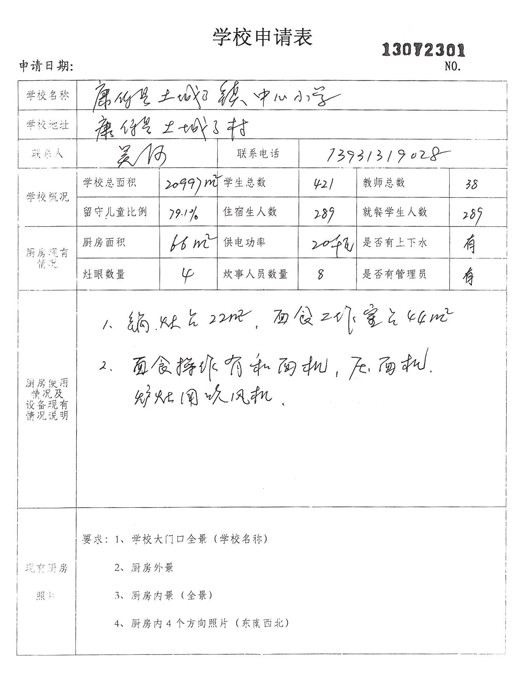 学校申请表
13072301
申请日期: NO.
学校名称 康保县土城子镇中心小学
学校地址 康保县土城子村
联系人 吴河 联系电话 13931319028
学校概况 学校总面积 20997m² 学生总数 421 教师总数 38
留守儿童比例 79.1% 住宿生人数 289 就餐学生人数 289
厨房现有情况 厨房面积 66m² 供电功率 20千瓦 是否有上下水 有
灶眼数量 4 炊事人员数量 8 是否有管理员 有
厨房使用情况及设备现有情况说明
1、锅灶占22m², 面食工作室占44m²
2. 面食操作有和面机, 压面机.
炉灶用吹风机.
现有厨房照片
要求: 1、学校大门口全景(学校名称)
2、厨房外景
3、厨房内景(全景)
4、厨房内4个方向照片(东南西北)